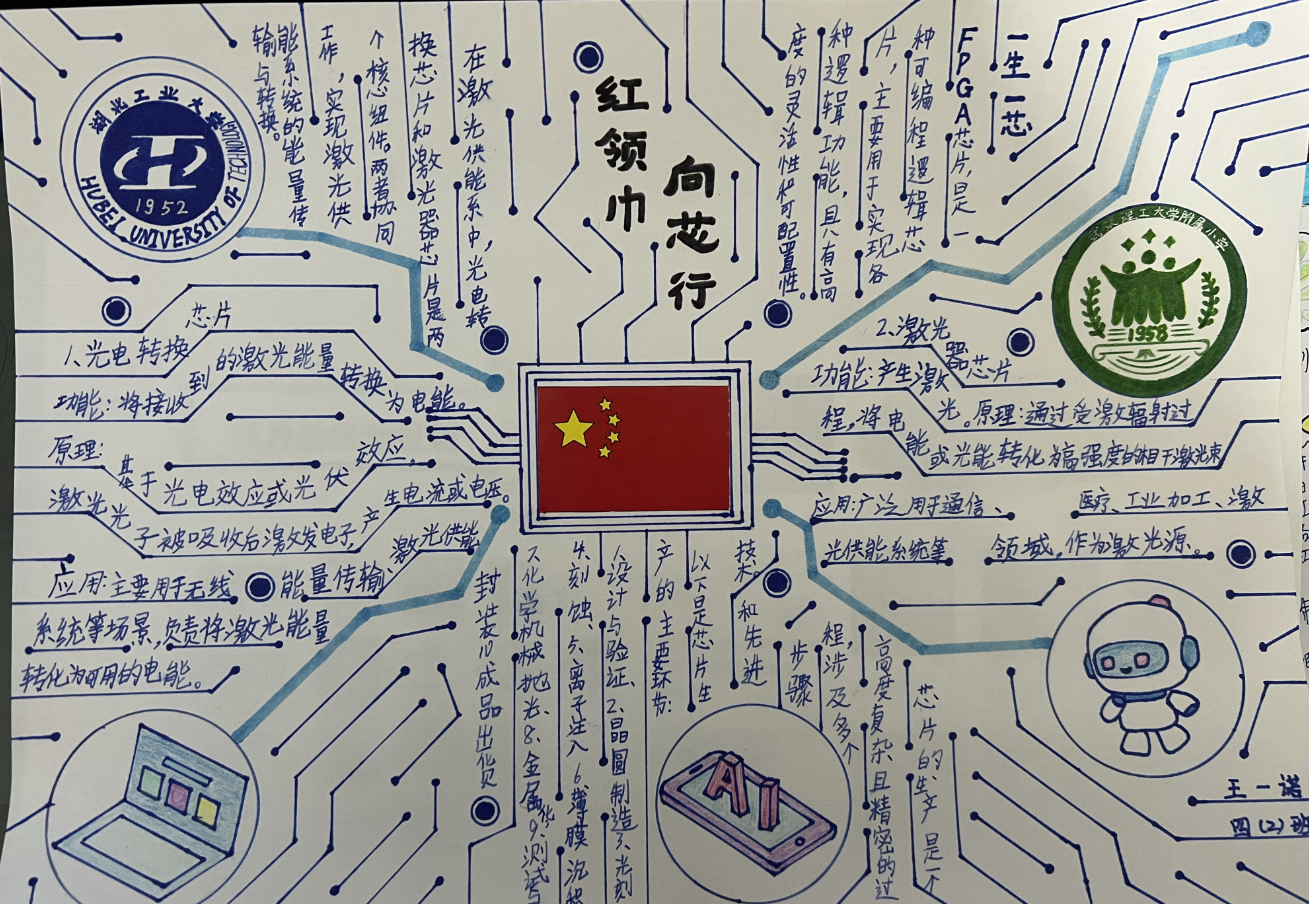 红领巾
向芯行
湖北工业大学
HUBEI UNIVERSITY OF TECHNOLOGY
1952
在激光供能系中，光电转
换芯片和激光器芯片是两
个核心组件。两者协同
工作，实现激光供
能系统的能量传
输与转换。
一生一芯
FPGA芯片，是一
种可编程逻辑芯
片，主要用于实现各
种逻辑功能，具有高
度的灵活性和可配置性。
武汉理工大学附属小学
1958
1.光电转换芯片
功能：将接收到的激光能量转换为电能。
原理：基于光电效应或光伏效应。
激光光子被吸收后激发电子，产生电流或电压。
应用：主要用于无线能量传输、激光供能
系统等场景，负责将激光能量
转化为可用的电能。
2.激光器芯片
功能：产生激光。原理：通过受激辐射过
程，将电能或光能转化为高强度的相干激光束
应用：广泛用于通信、医疗、工业加工、激
光供能系统等领域，作为激光源。
芯片的生产是一个
高度复杂且精密的过
程，涉及多个
步骤
和先进
技术。
以下是芯片生
产的主要环节：
1.设计与验证、2.晶圆制造3.光刻
4.刻蚀、5.离子注入 6.薄膜沉积
7.化学机械抛光、8.金属化、9.测试与
封装10成品出货
AI
王一诺
四（2）班